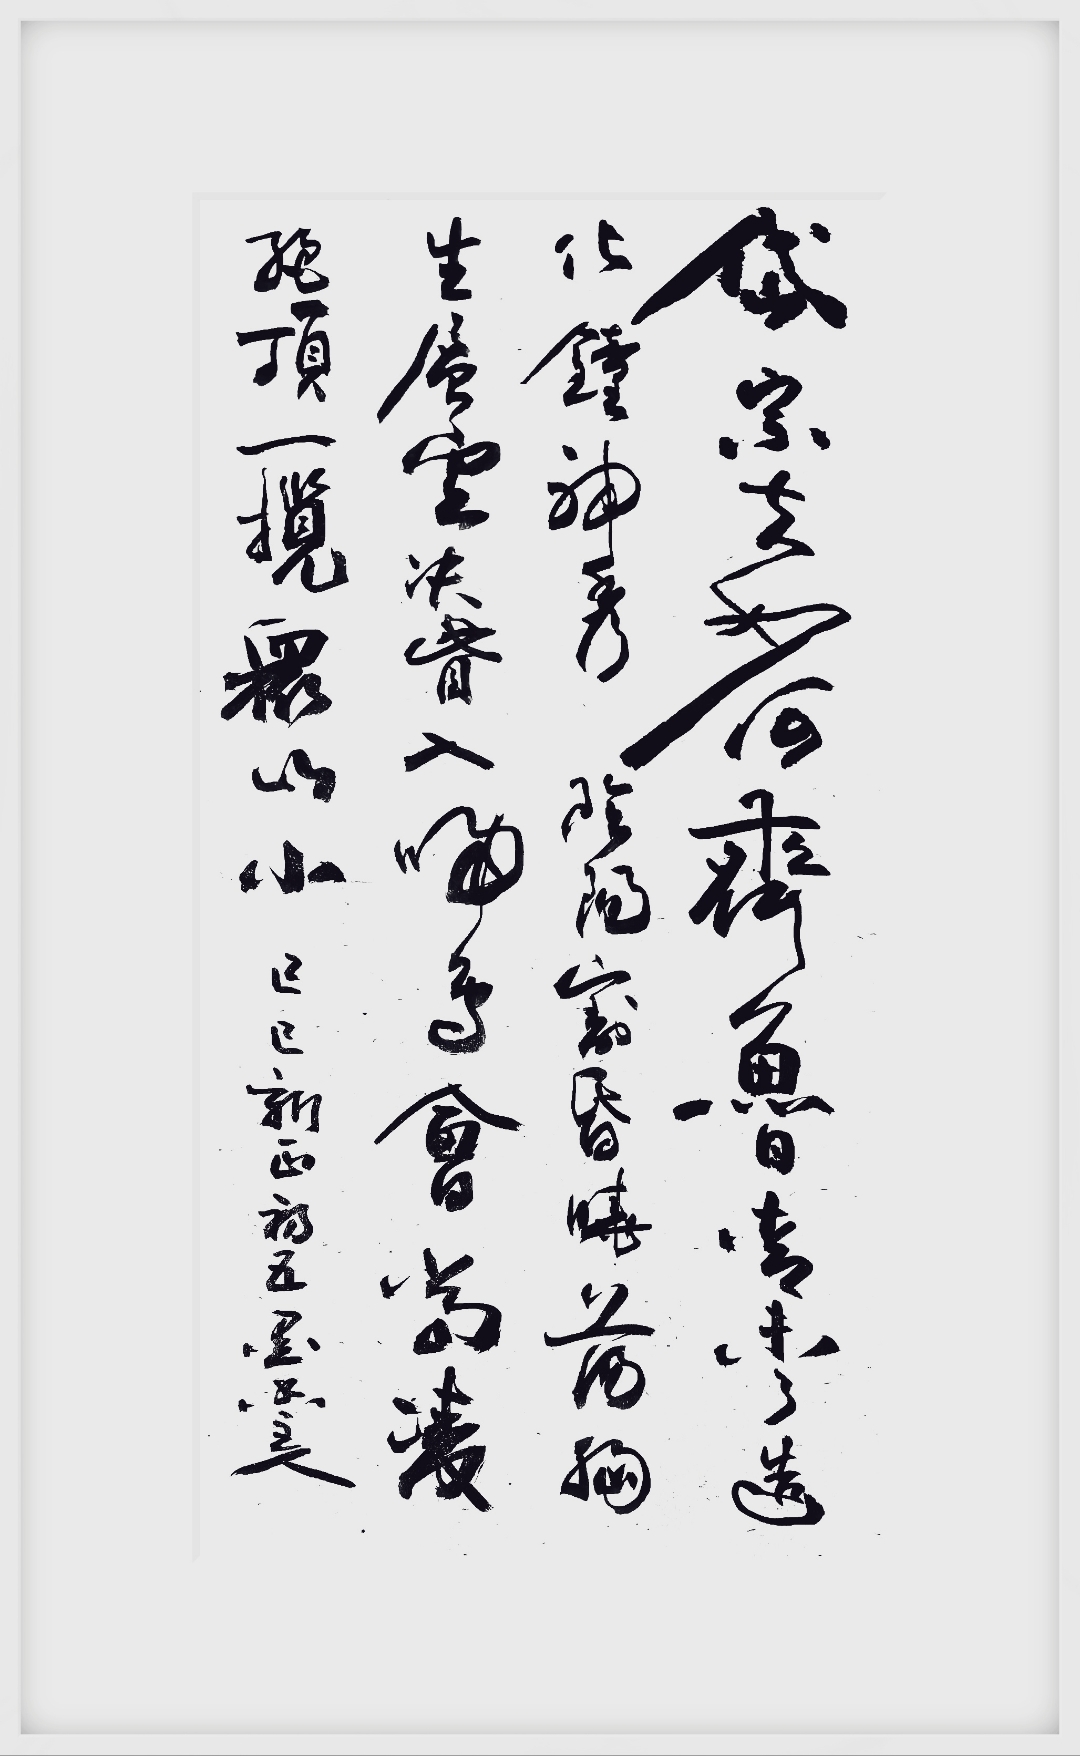 岱宗夫如何齊魯青未了造
化鐘神秀陰陽割昏曉蕩胸
生層雲決眥入歸鳥會當凌
絕頂一攬眾山小 己巳新正初五墨